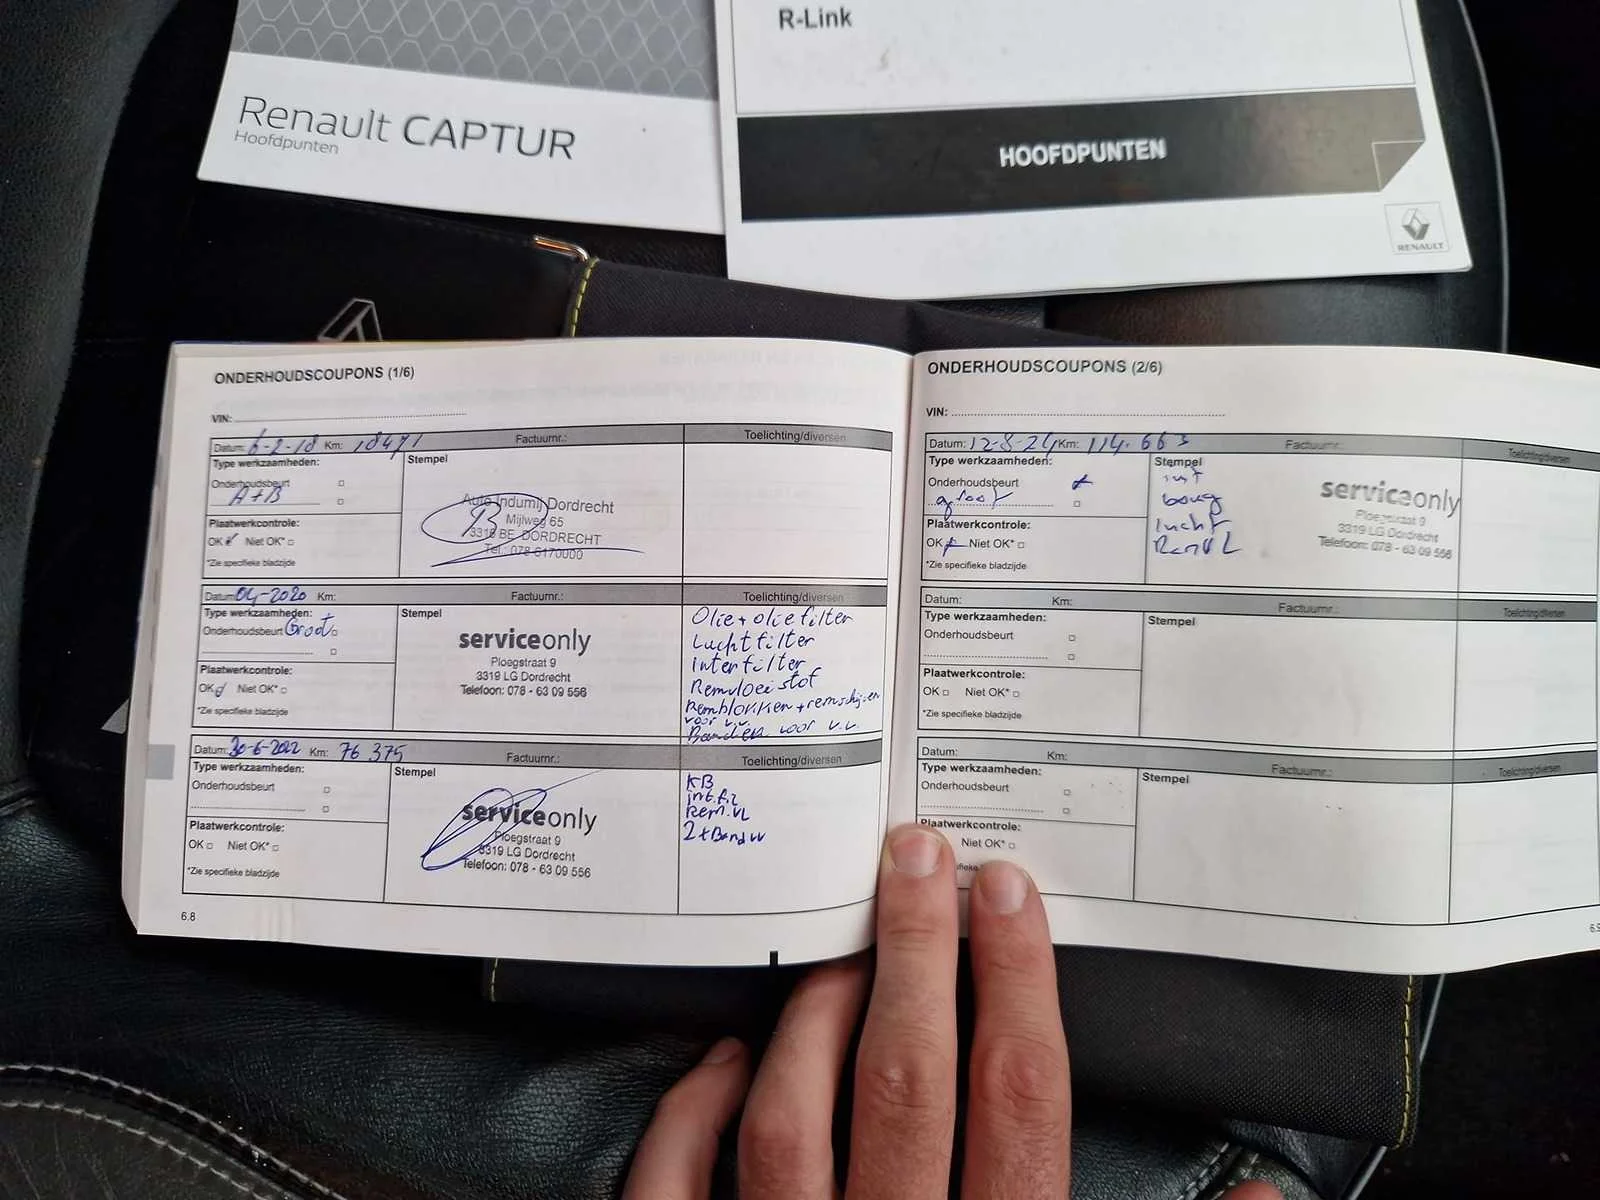 Renault CAPTUR
Hoofdpunten
R-Link
HOOFDPUNTEN
RENAULT
ONDERHOUDSCOUPONS (1/6)
VIN:
Datum: 6-2-18 Km: 18471 Factuurnr.: Toelichting/diversen
Type werkzaamheden: Stempel
Onderhoudsbeurt
A+B
Plaatwerkcontrole:
OK Niet OK*
*Zie specifieke bladzijde
Auto Indumij Dordrecht
Mijlweg 65
3316 BE DORDRECHT
Tel.: 078-6170000
Datum: 04-2020 Km: Factuurnr.: Toelichting/diversen
Type werkzaamheden: Stempel
Onderhoudsbeurt Groot
Plaatwerkcontrole:
OK Niet OK*
*Zie specifieke bladzijde
serviceonly
Ploegstraat 9
3319 LG Dordrecht
Telefoon: 078 - 63 09 556
Olie + olie filter
Luchtfilter
Interfilter
Remvloeistof
Remblokken + remschijven
voor v.v.
Banden voor v.v.
Datum: 30-6-2022 Km: 76 375 Factuurnr.: Toelichting/diversen
Type werkzaamheden: Stempel
Onderhoudsbeurt
Plaatwerkcontrole:
OK Niet OK*
*Zie specifieke bladzijde
serviceonly
Ploegstraat 9
3319 LG Dordrecht
Telefoon: 078 - 63 09 556
KB
int.fi
Rem.VL
2xBand
6.8
ONDERHOUDSCOUPONS (2/6)
VIN:
Datum: 12-8-24 Km: 114.663 Factuurnr.: Toelichting/diversen
Type werkzaamheden: Stempel
Onderhoudsbeurt
groot
Plaatwerkcontrole:
OK Niet OK*
*Zie specifieke bladzijde
int
boug
lucht
Rem VL
serviceonly
Ploegstraat 9
3319 LG Dordrecht
Telefoon: 078 - 63 09 556
Datum: Km: Factuurnr.: Toelichting/diversen
Type werkzaamheden: Stempel
Onderhoudsbeurt
Plaatwerkcontrole:
OK Niet OK*
*Zie specifieke bladzijde
Datum: Km: Factuurnr.: Toelichting/diversen
Type werkzaamheden: Stempel
Onderhoudsbeurt
Plaatwerkcontrole:
Niet OK*